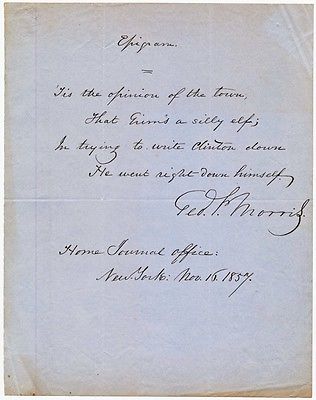 Epigram.
Tis the opinion of the town,
That Grim's a silly elf;
In trying to write Clinton down
He went right down himself.
Geo. P. Morris.
Home Journal Office:
New York: Nov. 16. 1857.